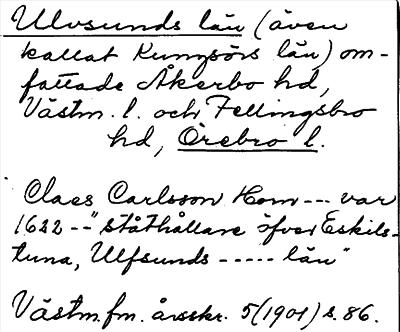 Ulvsunds län (även
kallat Kungsörs län) om-
fattade Åkerbo hd,
Västm. l. och Fellingsbro
hd, Örebro l.
Claes Carlsson Horn --- var
1622 --"ståthållare öfver Eskils-
tuna, Ulfsunds ----- län"
Västm. fm. årsskr. 5(1901) s. 86.